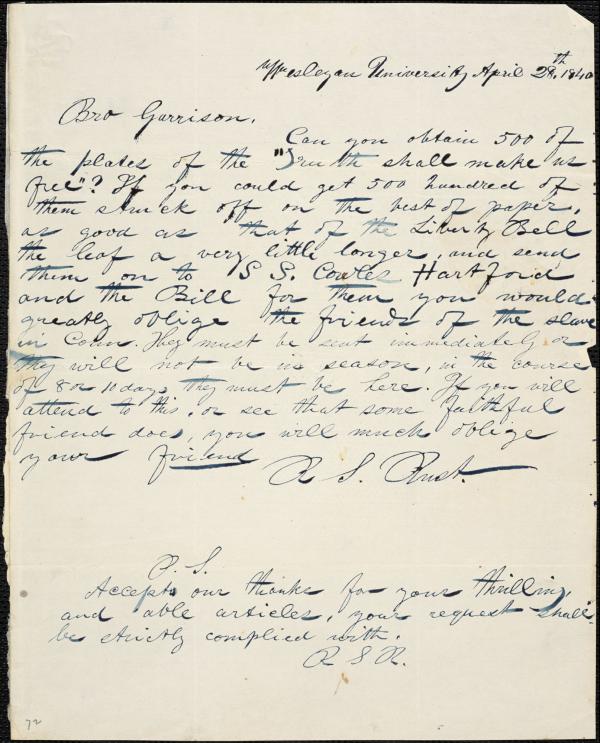 Wesleyan University April 28th, 1840
Bro Garrison,
Can you obtain 500 of
the plates of the "Truth shall make us
free"? If you could get 500 hundred of
them struck off on the best of paper,
as good as that of the Liberty Bell
the leaf a very little longer, and send
them on to S. S. Cowles Hartford
and the Bill for them you would
greatly oblige the friends of the slave
in Conn. They must be sent immediately or
they will not be in season, in the course
of 8 or 10 days they must be here. If you will
attend to this, or see that some faithful
friend does, you will much oblige
your friend
R S. Rust.
P. S.
Accept our thanks for your thrilling,
and able articles, your request shall
be strictly complied with.
R S R.
72